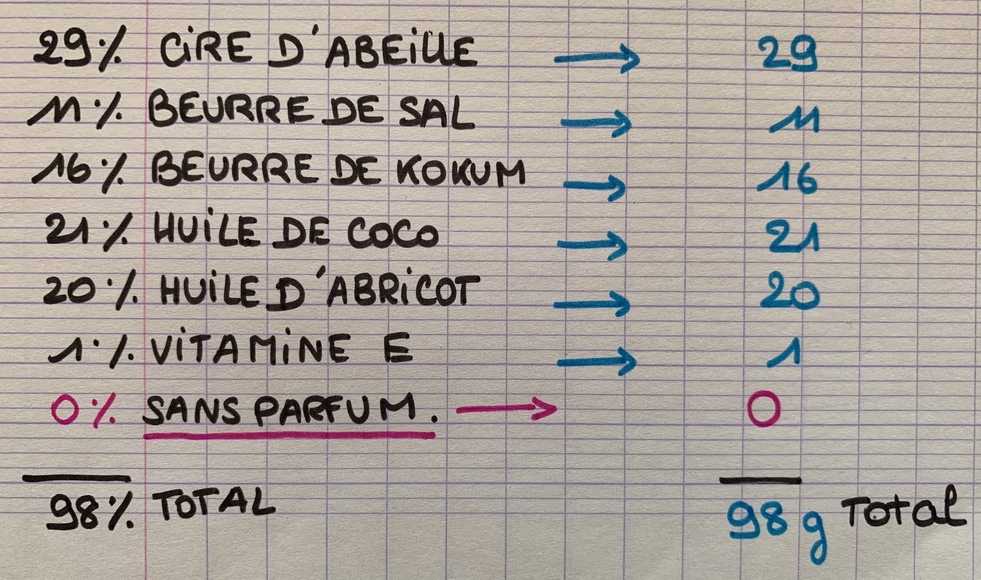 29% CIRE D'ABEILLE → 29
11% BEURRE DE SAL → 11
16% BEURRE DE KOKUM → 16
21% HUILE DE COCO → 21
20% HUILE D'ABRICOT → 20
1% VITAMINE E → 1
0% SANS PARFUM. → 0
98% TOTAL 98 g Total